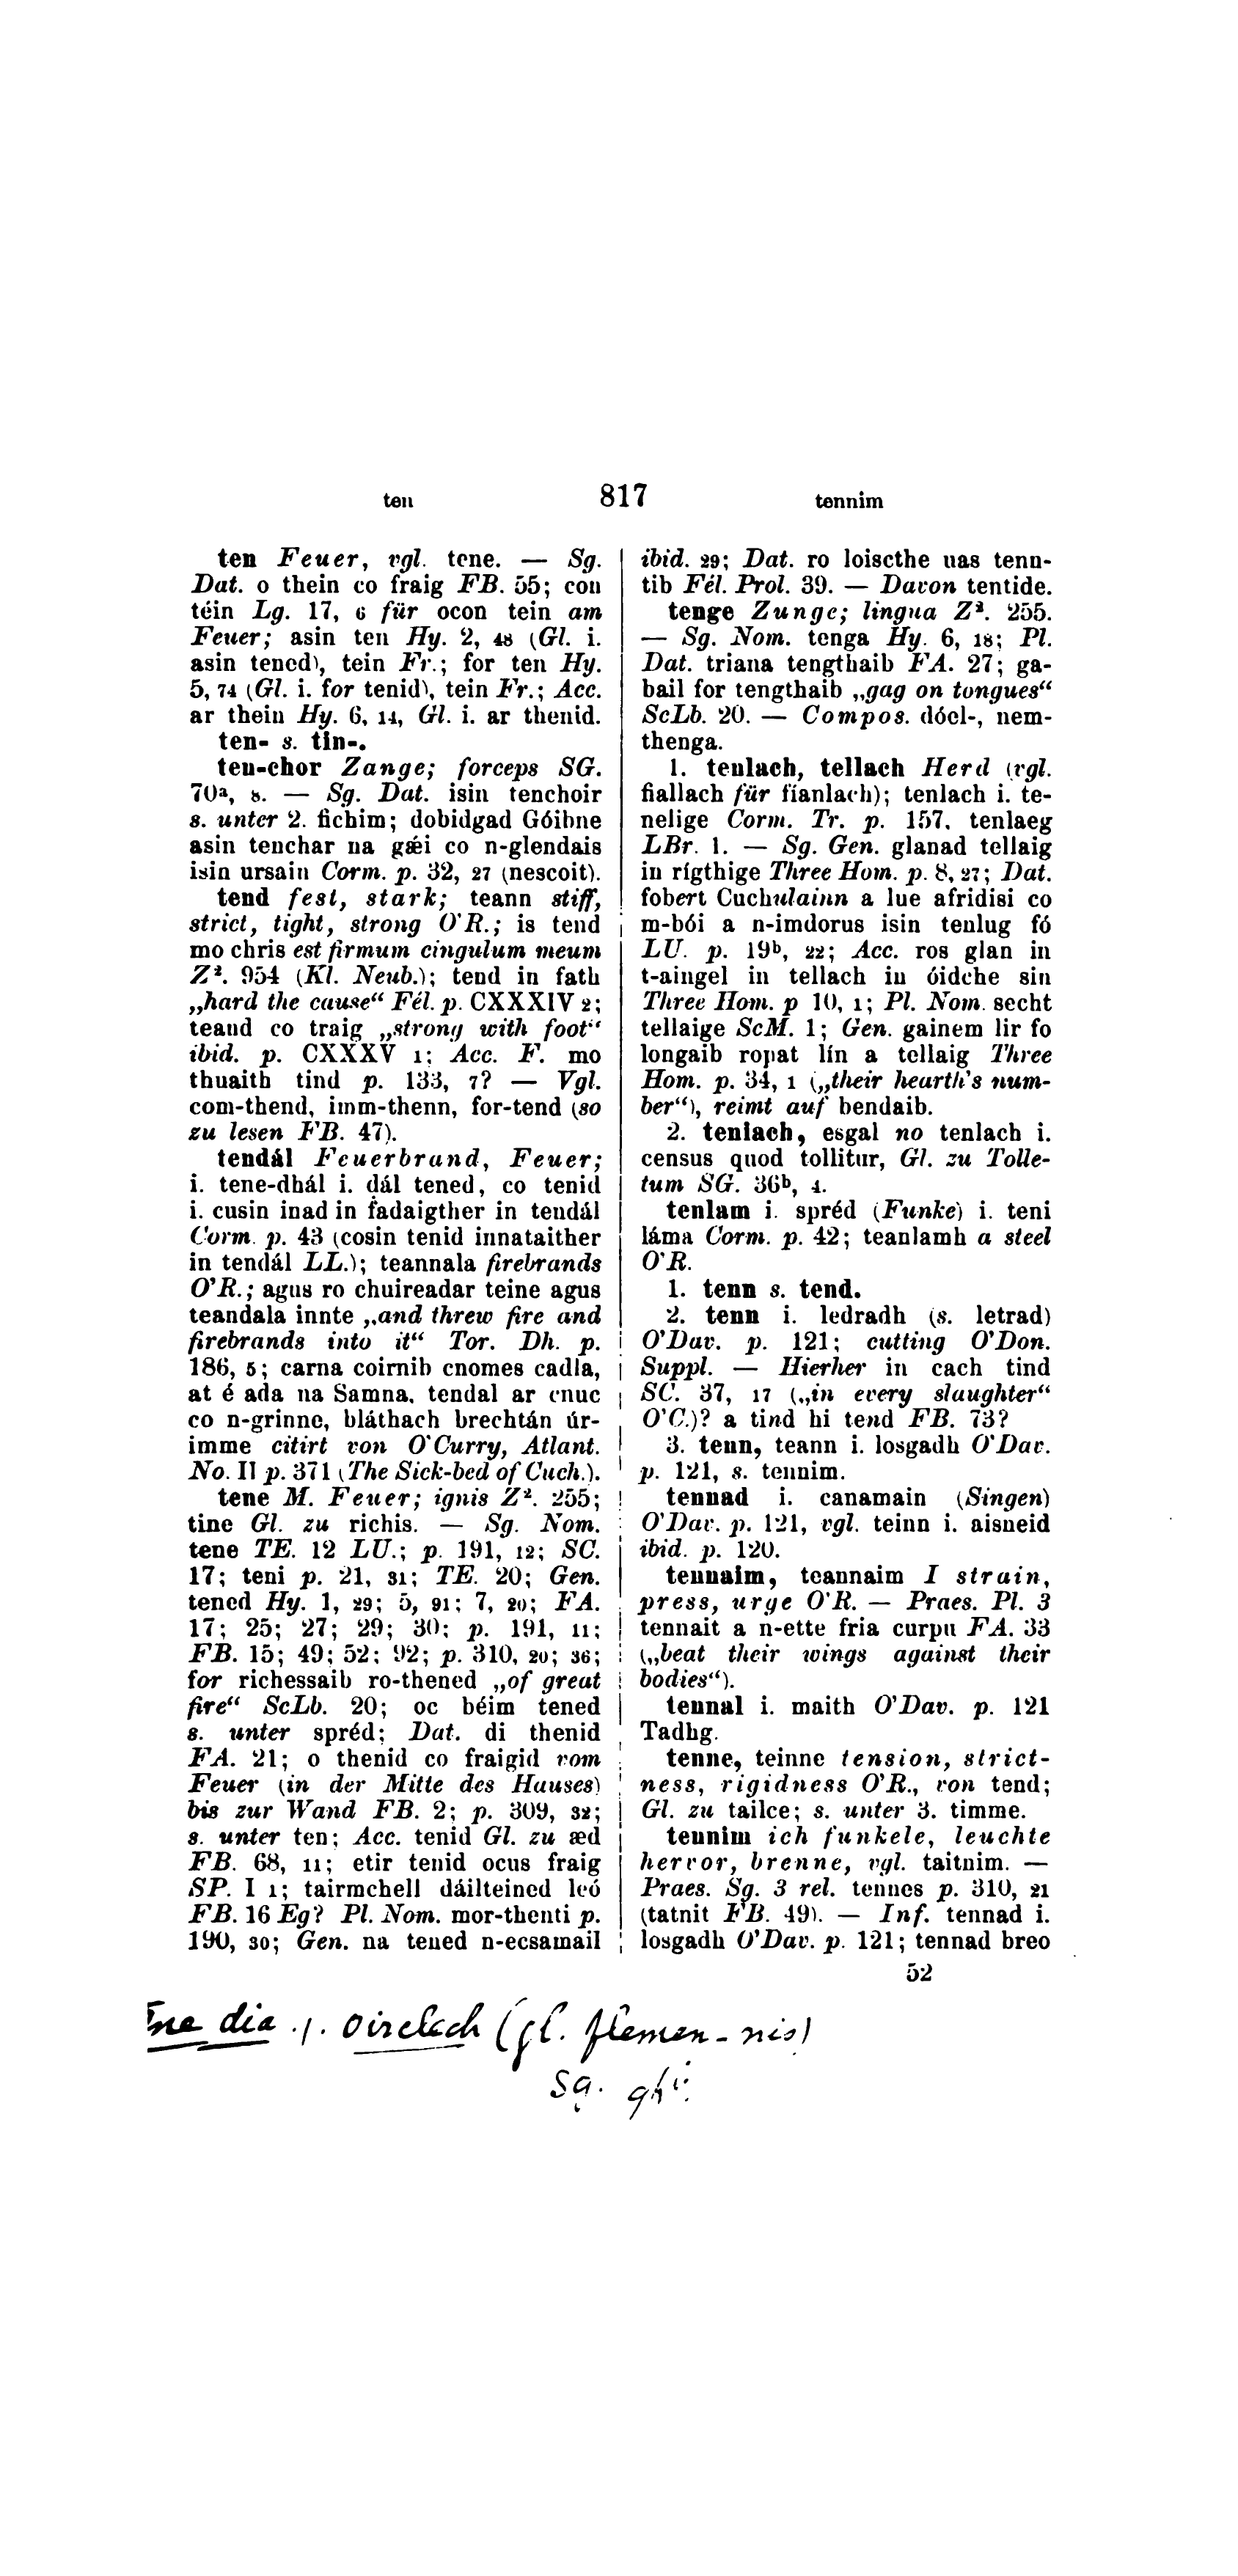 ten 817 tennim
ten Feuer, vgl. tene. — Sg.
Dat. o thein co fraig FB. 55; con
téin Lg. 17, 6 für ocon tein am
Feuer; asin ten Hy. 2, 48 (Gl. i.
asin tened), tein Fr.; for ten Hy.
5, 74 (Gl. i. for tenid), tein Fr.; Acc.
ar thein Hy. 6, 14, Gl. i. ar thenid.
ten- s. tin-.
ten-chor Zange; forceps SG.
70ᵃ, 8. — Sg. Dat. isin tenchoir
s. unter 2. fichim; dobidgad Góibne
asin tenchar na gæi co n-glendais
isin ursain Corm. p. 32, 27 (nescoit).
tend fest, stark; teann stiff,
strict, tight, strong O'R.; is tend
mo chris est firmum cingulum meum
Z². 954 (Kl. Neub.); tend in fath
„hard the cause“ Fél. p. CXXXIV 2;
teand co traig „strong with foot“
ibid. p. CXXXV 1; Acc. F. mo
thuaith tind p. 133, 7? — Vgl.
com-thend, imm-thenn, for-tend (so
zu lesen FB. 47).
tendál Feuerbrand, Feuer;
i. tene-dhál i. dál tened, co tenid
i. cusin inad in fadaigther in tendál
Corm. p. 43 (cosin tenid innataither
in tendál LL.); teannala firebrands
O'R.; agus ro chuireadar teine agus
teandala innte „and threw fire and
firebrands into it“ Tor. Dh. p.
186, 5; carna coirnib cnomes cadla,
at é ada na Samna, tendal ar cnuc
co n-grinne, bláthach brechtán úr-
imme citirt von O'Curry, Atlant.
No. II p. 371 (The Sick-bed of Cuch.).
tene M. Feuer; ignis Z². 255;
tine Gl. zu richis. — Sg. Nom.
tene TE. 12 LU.; p. 191, 12; SC.
17; teni p. 21, 31; TE. 20; Gen.
tened Hy. 1, 29; 5, 91; 7, 20; FA.
17; 25; 27; 29; 30; p. 191, 11;
FB. 15; 49; 52; 92; p. 310, 20; 36;
for richessaib ro-thened „of great
fire“ ScLb. 20; oc béim tened
s. unter spréd; Dat. di thenid
FA. 21; o thenid co fraigid vom
Feuer (in der Mitte des Hauses)
bis zur Wand FB. 2; p. 309, 32;
s. unter ten; Acc. tenid Gl. zu æd
FB. 68, 11; etir tenid ocus fraig
SP. I 1; tairmchell dáilteined leó
FB. 16 Eg? Pl. Nom. mor-thenti p.
190, 30; Gen. na tened n-ecsamail
ibid. 29; Dat. ro loiscthe uas tenn-
tib Fél. Prol. 39. — Davon tentide.
tenge Zunge; lingua Z². 255.
— Sg. Nom. tenga Hy. 6, 18; Pl.
Dat. triana tengthaib FA. 27; ga-
bail for tengthaib „gag on tongues“
ScLb. 20. — Compos. dócl-, nem-
thenga.
1. tenlach, tellach Herd (vgl.
fiallach für fíanlach); tenlach i. te-
nelige Corm. Tr. p. 157. tenlaeg
LBr. 1. — Sg. Gen. glanad tellaig
in rígthige Three Hom. p. 8, 27; Dat.
fobert Cuchulainn a lue afridisi co
m-bói a n-imdorus isin tenlug fó
LU. p. 19ᵇ, 22; Acc. ros glan in
t-aingel in tellach in óidche sin
Three Hom. p 10, 1; Pl. Nom. secht
tellaige ScM. 1; Gen. gainem lir fo
longaib ropat lín a tellaig Three
Hom. p. 34, 1 („their hearth's num-
ber“), reimt auf bendaib.
2. tenlach, esgal no tenlach i.
census quod tollitur, Gl. zu Tolle-
tum SG. 36ᵇ, 4.
tenlam i. spréd (Funke) i. teni
láma Corm. p. 42; teanlamh a steel
O'R.
1. tenn s. tend.
2. tenn i. ledradh (s. letrad)
O'Dav. p. 121; cutting O'Don.
Suppl. — Hierher in cach tind
SC. 37, 17 („in every slaughter“
O'C.)? a tind hi tend FB. 73?
3. tenn, teann i. losgadh O'Dav.
p. 121, s. tennim.
tennad i. canamain (Singen)
O'Dav. p. 121, vgl. teinn i. aisneid
ibid. p. 120.
tennaim, teannaim I strain,
press, urge O'R. — Praes. Pl. 3
tennait a n-ette fria curpu FA. 33
(„beat their wings against their
bodies“).
tennal i. maith O'Dav. p. 121
Tadhg.
tenne, teinne tension, strict-
ness, rigidness O'R., von tend;
Gl. zu tailce; s. unter 3. timme.
tennim ich funkele, leuchte
hervor, brenne, vgl. taitnim. —
Praes. Sg. 3 rel. tennes p. 310, 21
(tatnit FB. 49). — Inf. tennad i.
losgadh O'Dav. p. 121; tennad breo
52
dia .i. oirclech (gl. flamen-nis)
Sg.